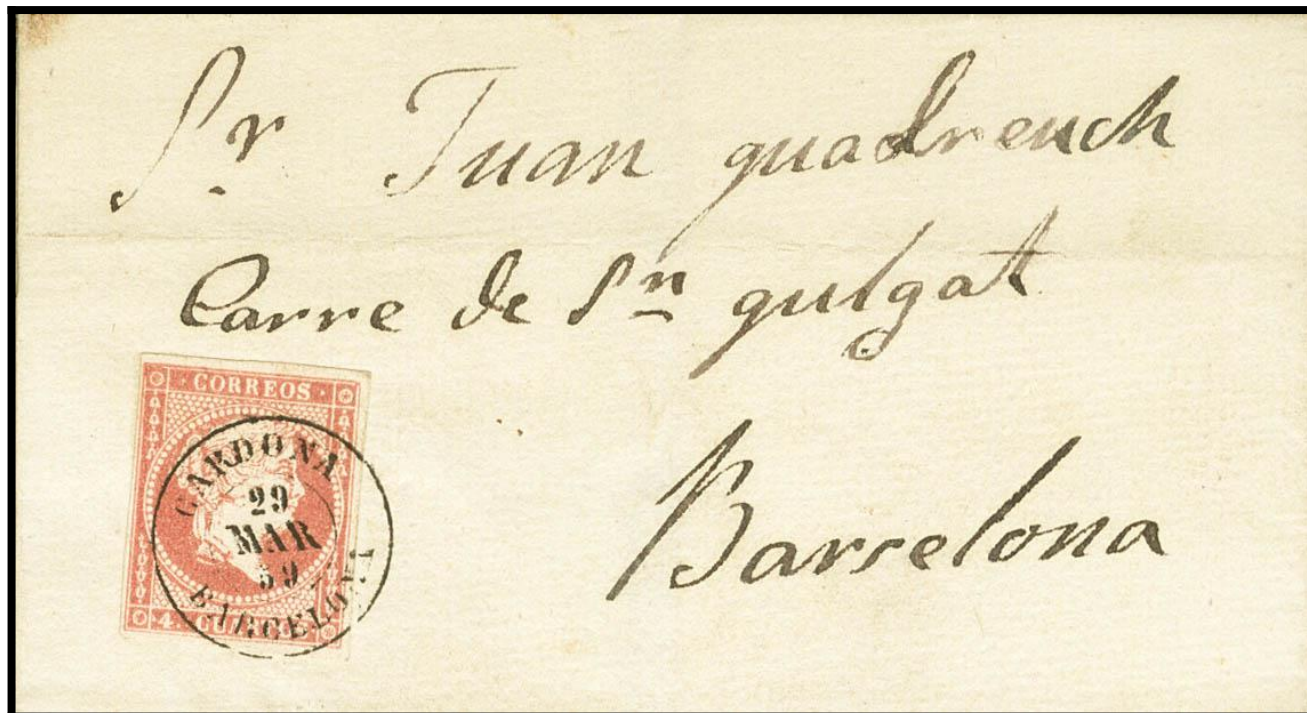 Sr Juan quadreuch
Carre de Sn qulgat
Barcelona
CORREOS
CARDONA
29
MAR
59
BARCELONA
4 CUARTOS